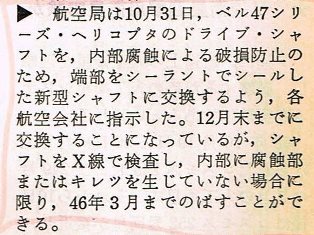 ▶ 航空局は10月31日，ベル47シリ
ーズ・ヘリコプタのドライブ・シャ
フトを，内部腐蝕による破損防止の
ため，端部をシーラントでシールし
た新型シャフトに交換するよう，各
航空会社に指示した。12月末までに
交換することになっているが，シャ
フトをX線で検査し，内部に腐蝕部
またはキレツを生じていない場合に
限り，46年3月までのばすことがで
きる。